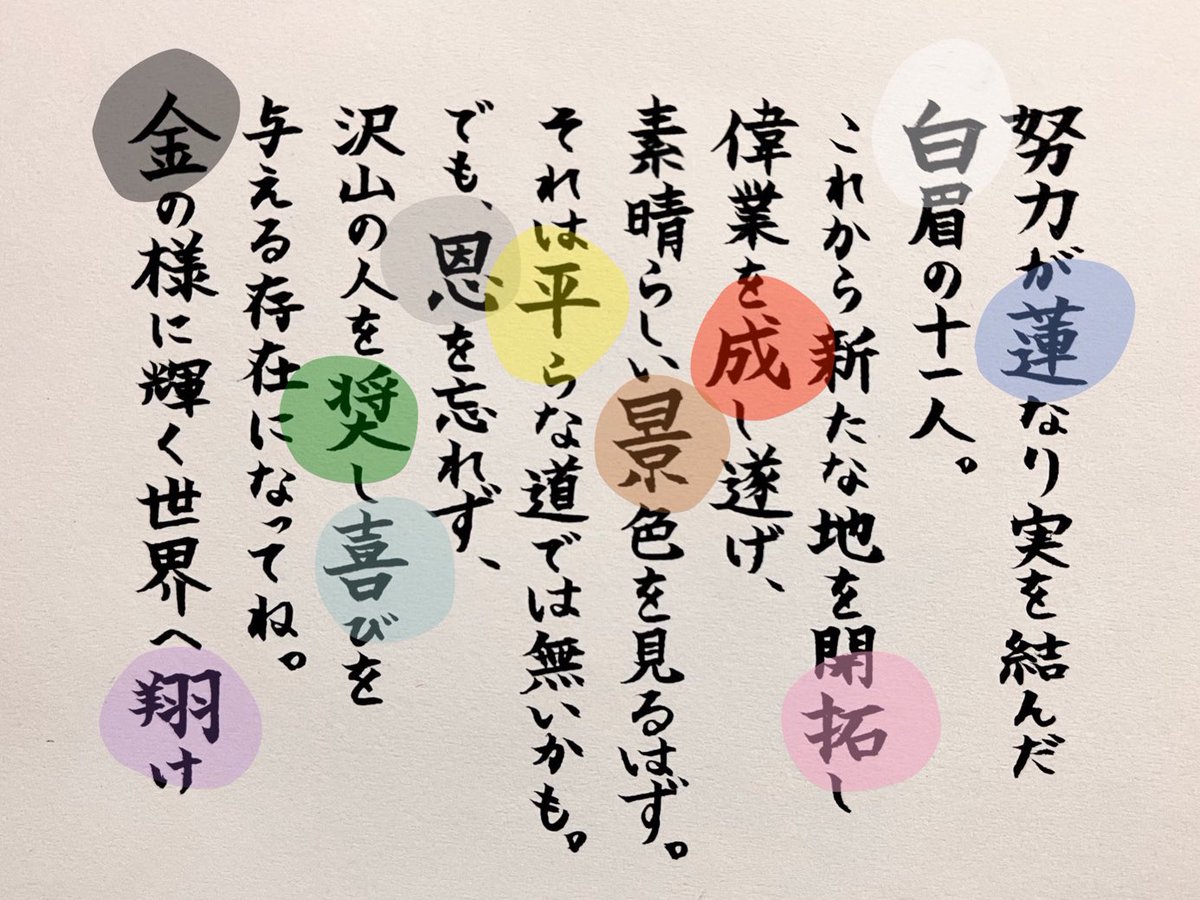 努力が蓮なり実を結んだ
白眉の十一人。
これから新たな地を開拓し
偉業を成し遂げ、
素晴らしい景色を見るはず。
それは平らな道では無いかも。
でも、恩を忘れず、
沢山の人を奨し喜びを
与える存在になってね。
金の様に輝く世界へ翔け